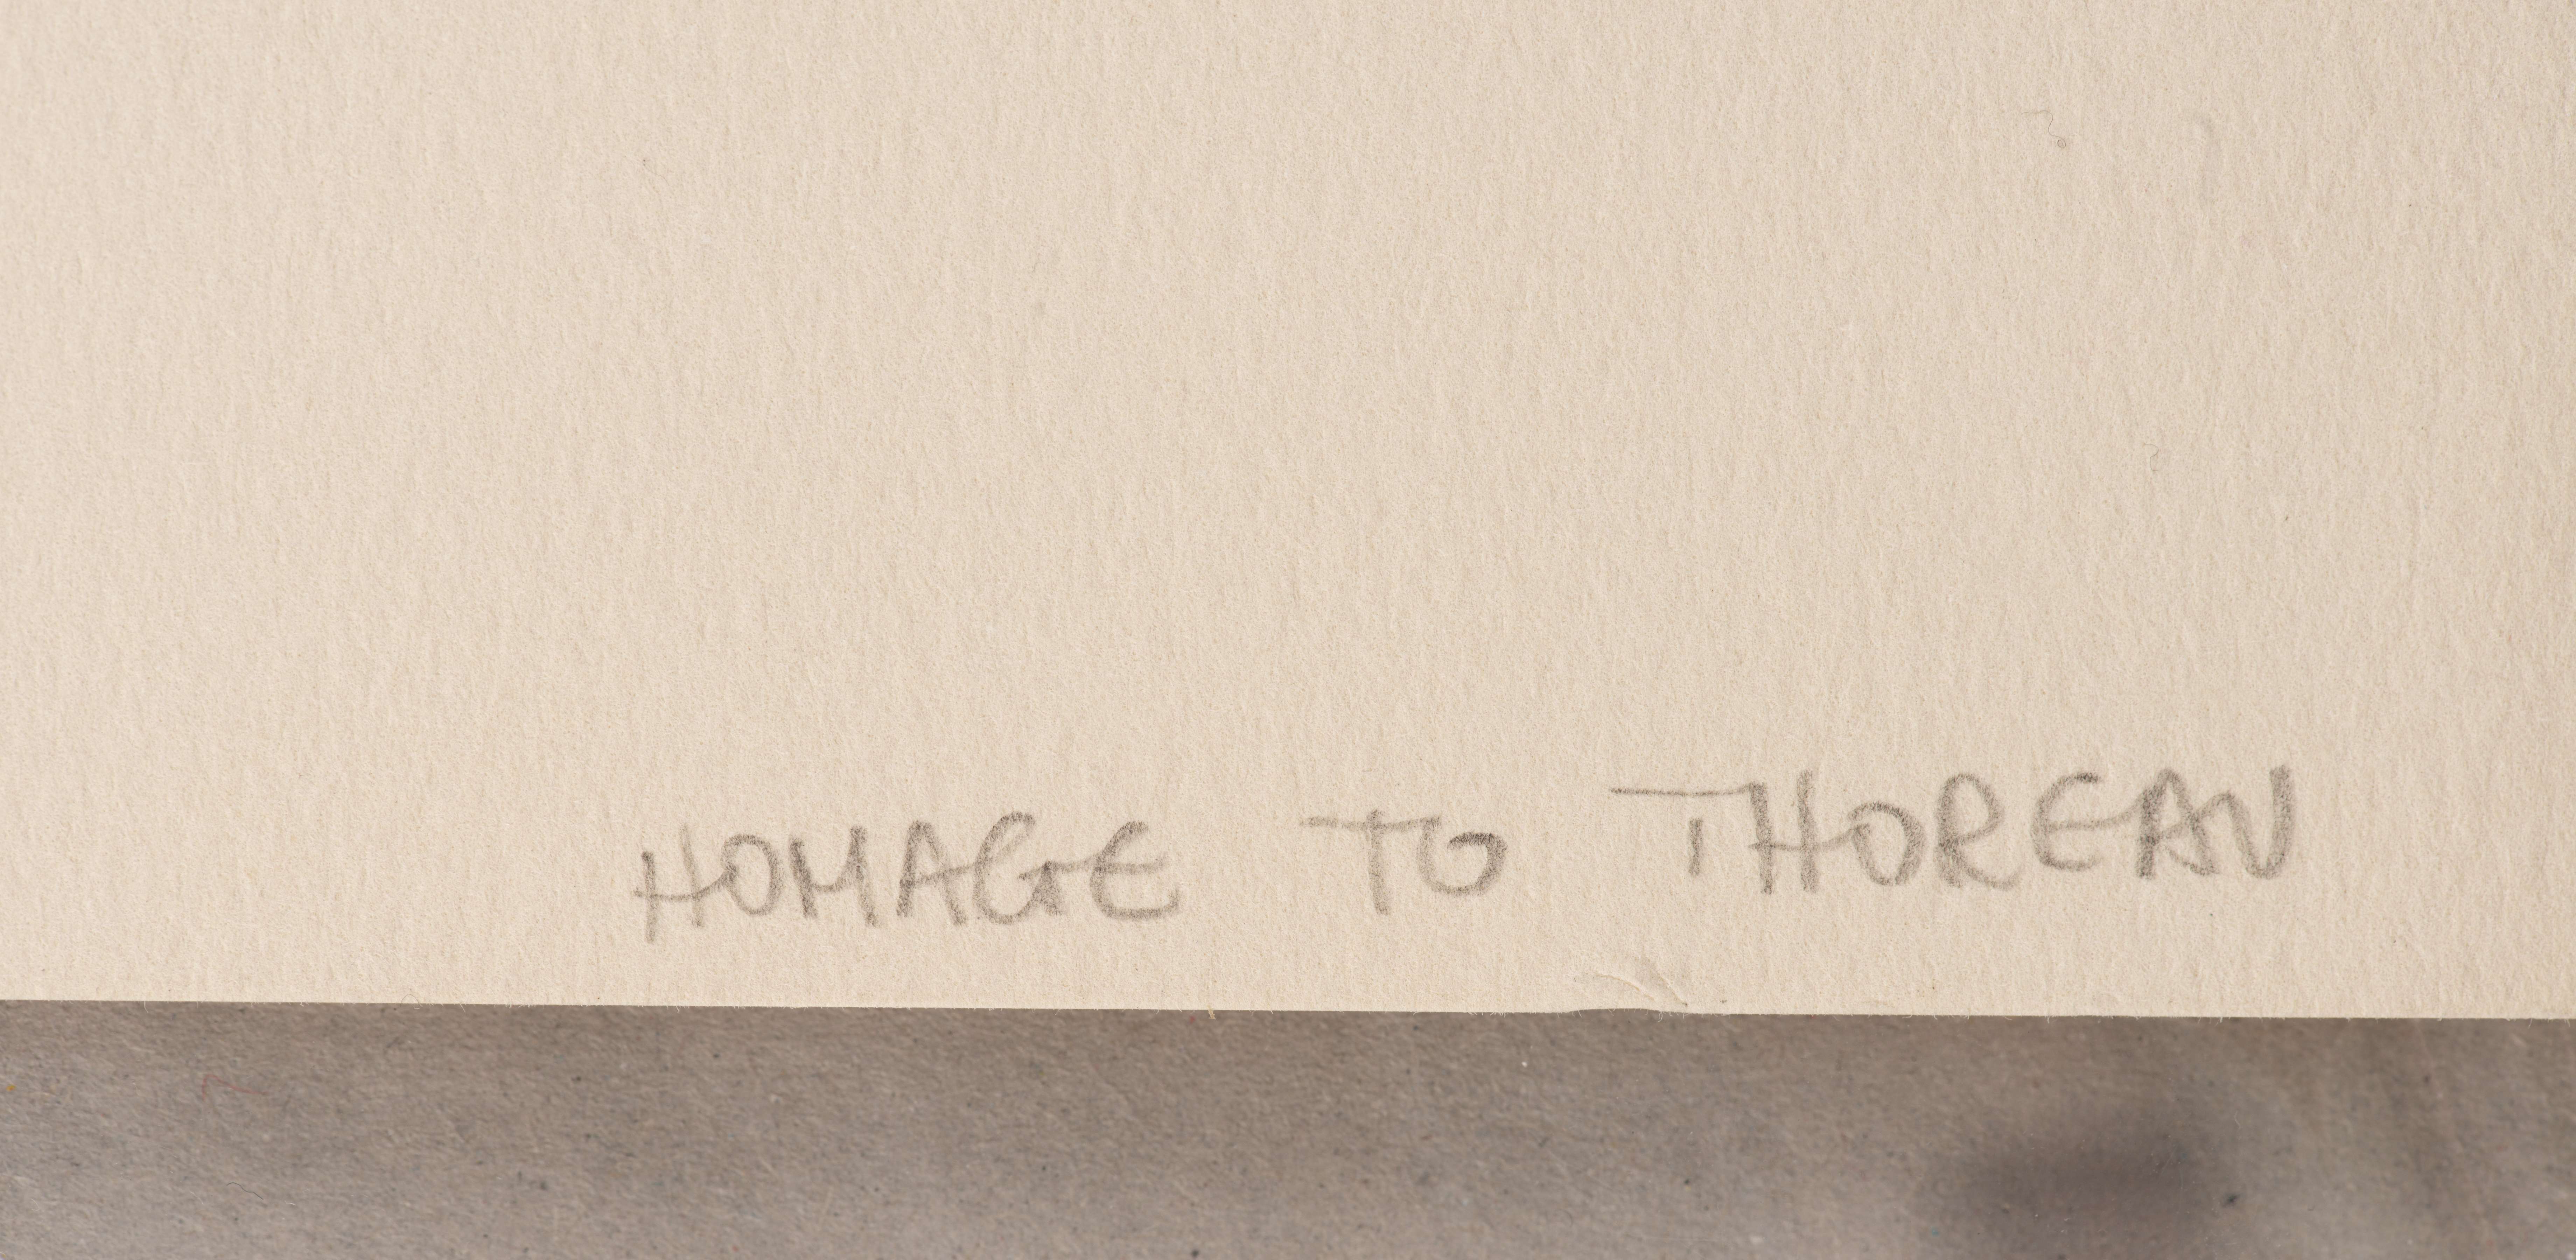 HOMAGE TO THOREAU